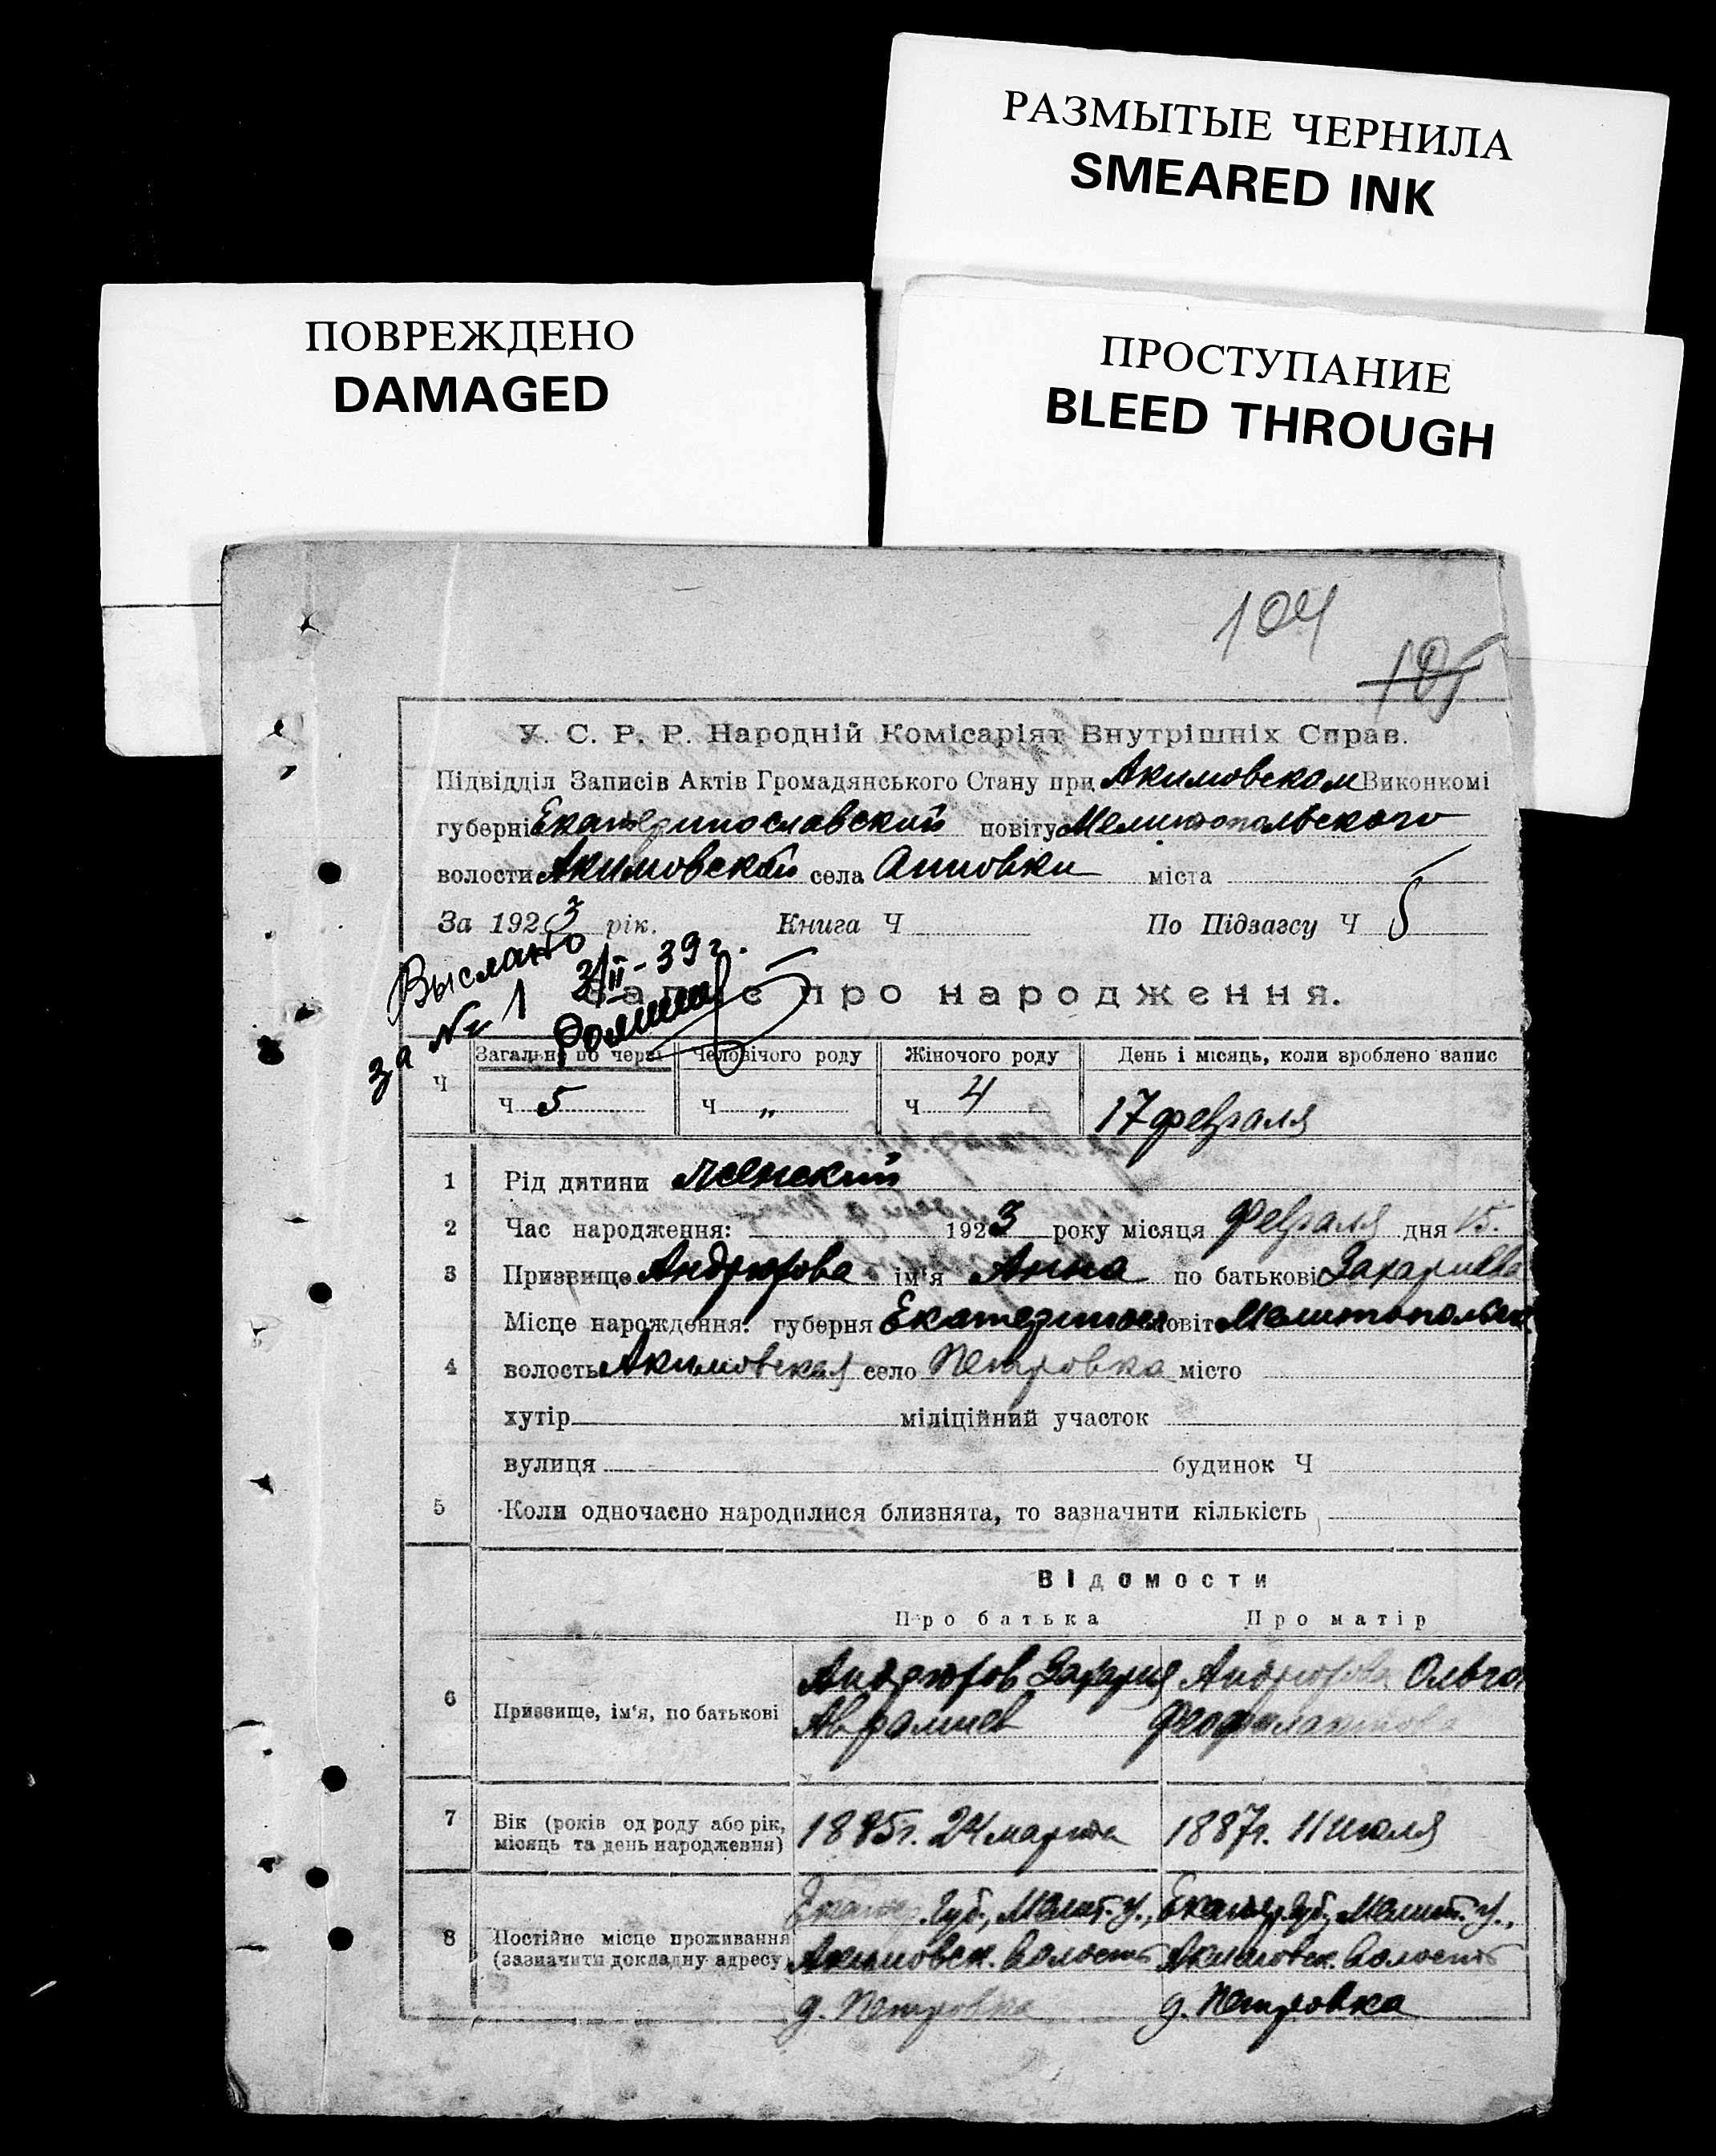 РАЗМЫТЫЕ ЧЕРНИЛА
SMEARED INK
ПОВРЕЖДЕНО
DAMAGED
ПРОСТУПАНИЕ
BLEED THROUGH
104
105
У. С. Р. Р. Народній Комісаріят Внутрішніх Справ.
Підвідділ Записів Актів Громадянського Стану при Акимовском Виконкомі
губерні Екатеринославский повіту Мелитопольского
волости Акимовской села Анновки міста
За 1923 рік. Книга Ч По Підзагсу Ч 5
Выслано 3/II-39 г.
за № 1
Запис про народження.
Ч Загальн. по черзі Человічого роду Жіночого роду День і місяць, коли вроблено запис
Ч 5 Ч „ Ч 4 17 февраля
1 Рід дитини женский
2 Час народження: 1923 року місяця февраля дня 15.
3 Призвище Андрюгова ім'я Анна по батькові Захариева
Місце народження: губерня Екатеринос повіт Мелитопольск
4 волость Акимовская село Петровка місто
хутір міліційний участок
вулиця будинок Ч
5 Коли одночасно народилися близнята, то зазначити кількість
Відомости
Про батька Про матір
6 Призвище, ім'я, по батькові
Андрюгов Захария Аврамиев
Андрюгова Ольга Феофилактова
7 Вік (років од роду або рік,
місяць та день народження)
1885 г. 24 марта 1887 г. 11 июля
8 Постійне місце проживання
(зазначити докладну адресу)
Екатер. Губ., Мелит. у., Акимовск. волость д. Петровка
Екатер. Губ., Мелит. у., Акимовск. волость д. Петровка